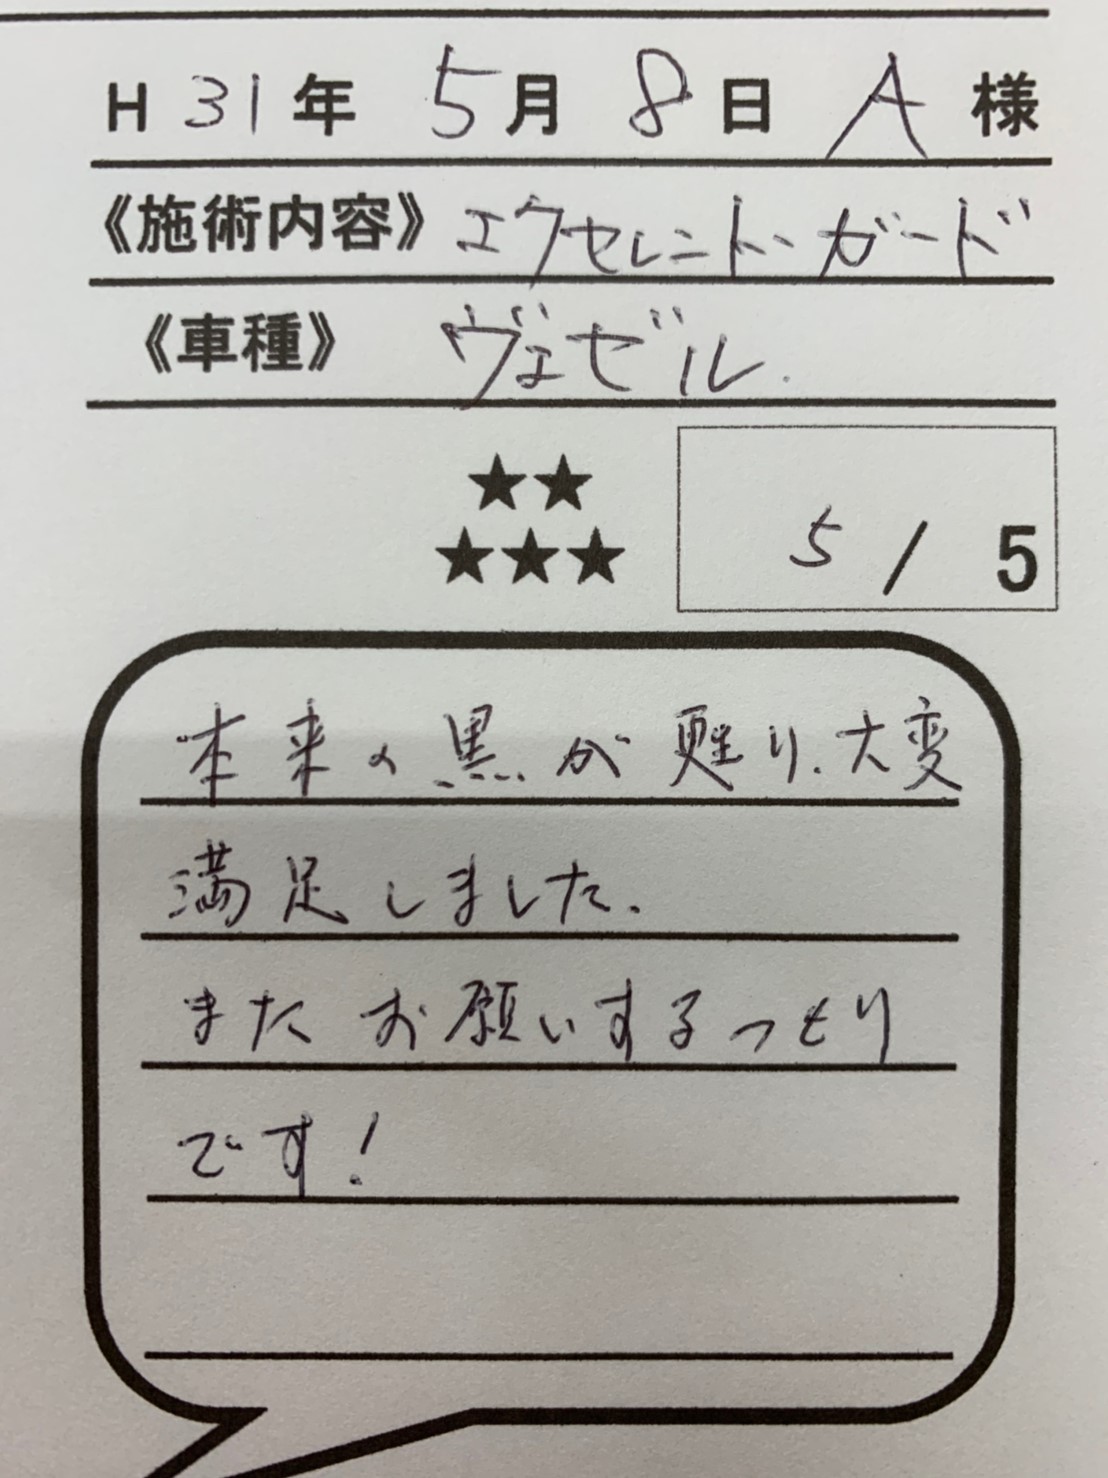 H 31年 5月 8日 A 様
《施術内容》 エクセレント・ガード
《車種》 ヴェゼル.
★★
★★★
5 / 5
本来の黒が甦り、大変
満足しました。
またお願いするつもり
です！